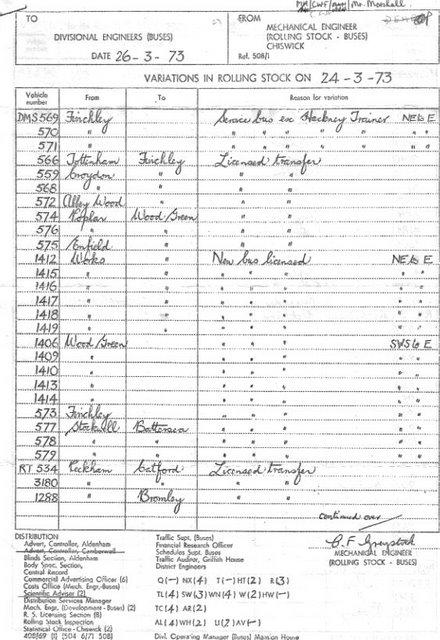 MM/CWF/ Mr. Marshall
TO
DIVISIONAL ENGINEERS (BUSES)
DATE 26-3-73
FROM
MECHANICAL ENGINEER
(ROLLING STOCK - BUSES)
CHISWICK
Ref. 508/1
VARIATIONS IN ROLLING STOCK ON 24-3-73
Vehicle number From To Reason for variation
DMS 569 Finchley Service bus exc Hackney Trainer NE to E
570 " " " " " " " "
571 " " " " " " " "
566 Tottenham Finchley Licensed transfer
559 Croydon " " "
568 " " " "
572 Abbey Wood " " "
574 Poplar Wood Green " "
576 " " " "
575 Enfield " " "
1412 Works " New bus licensed NE to E
1415 " " " " " " "
1416 " " " " " " "
1417 " " " " " " "
1418 " " " " " " "
1419 " " " " " " "
1406 Wood Green " " " SWS to E
1409 " " " " " "
1410 " " " " " "
1413 " " " " " "
1414 " " " " " "
573 Finchley " " " " "
577 Stockwell Battersea " " " " "
578 " " " " " " "
579 " " " " " " "
RT 534 Peckham Catford Licensed transfer
3180 " " " "
1288 " Bromley " "
continued over
DISTRIBUTION
Advert. Controller, Aldenham
Advert. Controller, Camberwell
Blinds Section, Aldenham
Body Spec. Section,
Central Record
Commercial Advertising Officer (6)
Costs Office (Mech. Engr.-Buses)
Scientific Adviser (2)
Distribution Services Manager
Mech. Engr. (Development - Buses) (2)
R. S. Licensing Section (8)
Rolling Stock Inspection
Statistical Office - Chiswick (2)
408/69 (1) (504 6/71 508)
Traffic Supt. (Buses)
Financial Research Officer
Schedules Supt. Buses
Traffic Auditor, Griffith House
District Engineers
Q(-) NX(4) T(-) HT(2) R(3)
TL(4) SW(3) WN(4) W(2) HW(-)
TC(4) AR(2)
AL(4) WH(2) U(2) AV(-)
Divl. Operating Manager (Buses) Mansion House
C. F. Greystock
MECHANICAL ENGINEER
(ROLLING STOCK - BUSES)